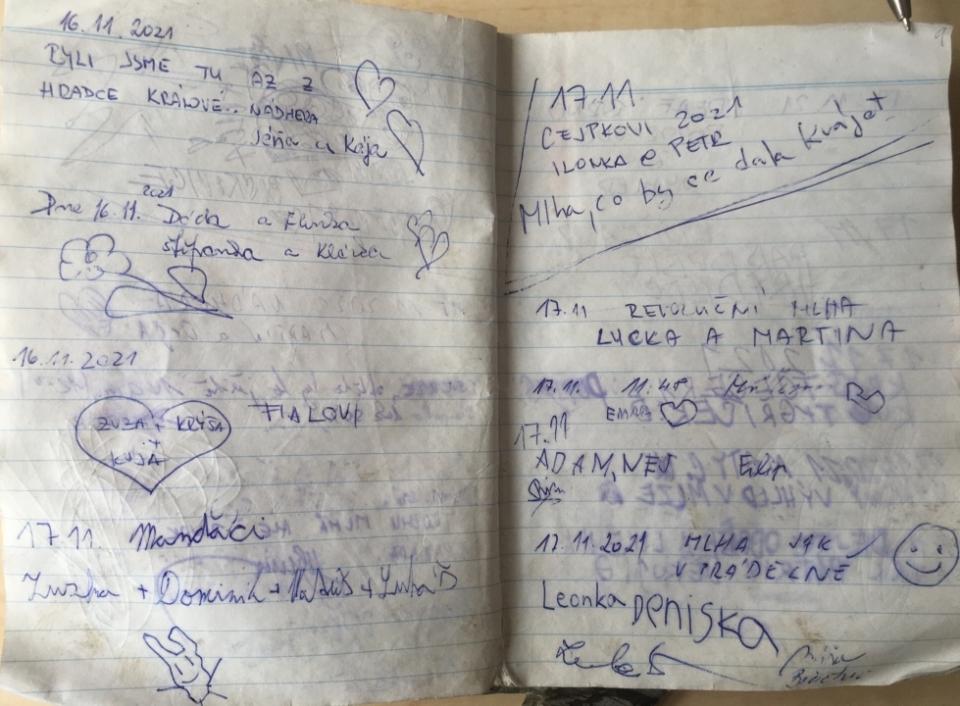 16.11. 2021
BYLI JSME TU AŽ Z
HRADCE KRÁLOVÉ.. NÁDHERA
Jéňa a Kája
2021
Dne 16.11. Dáda a
Štěpánka a
16.11.2021
ZUZA, KRÝSA
+
KUJA
FIALOVI
17.11. Mandáci
Zuzka + Dominik + Matúš + Lukáš
9
17.11.
CEJPKOVI 2021
ILONKA e PETR
Mlha, co by se dala krájet
17.11 REVOLUČNÍ MLHA
LUCKA A MARTINA
17.11. 11:48
EMMA
17.11
ADAM, NEJ Filip
17.11.2021 MLHA JAK
V PRÁDELNĚ
Leonka DENISKA